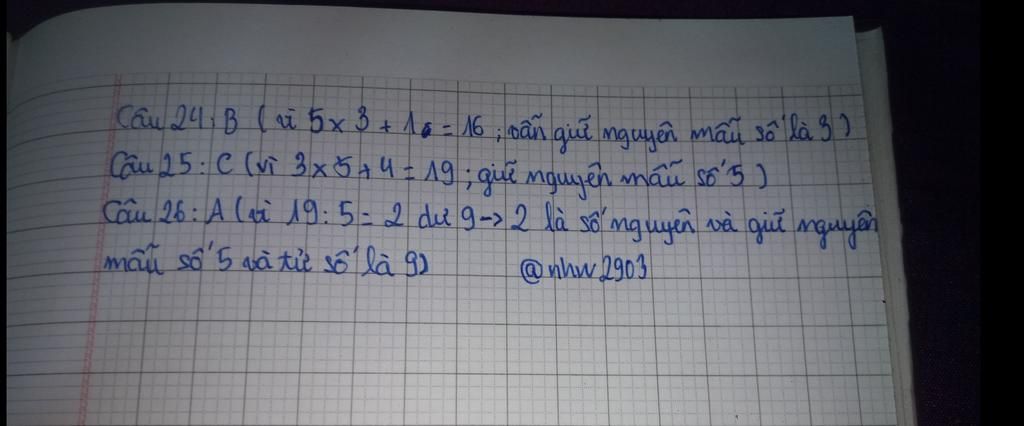 Câu 24: B (vì 5 x 3 + 1 = 16 ; vẫn giữ nguyên mẫu số là 3)
Câu 25 : C (vì 3 x 5 + 4 = 19 ; giữ nguyên mẫu số 5)
Câu 26 : A (vì 19 : 5 = 2 dư 9 -> 2 là số nguyên và giữ nguyên
mẫu số 5 và tử số là 9) @nhw2903